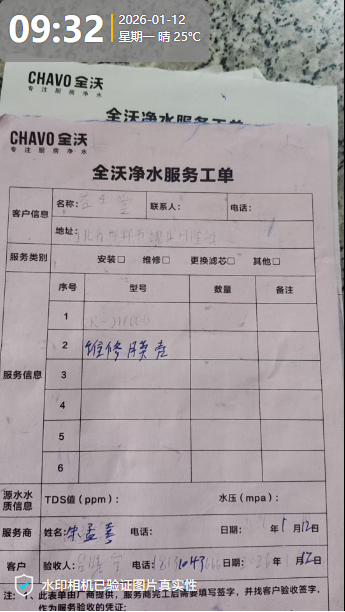 09:32
2026-01-12
星期一 晴 25℃
CHAVO 全沃
专注厨房净水
全沃净水服务工单
CHAVO 全沃
专注厨房净水
全沃净水服务工单
客户信息 名称： 联系人： 电话：
地址：
服务类别 安装□ 维修□ 更换滤芯□ 其他□
服务信息 序号 型号 数量 备注
1
2 维修膜壳
3
4
5
6
源水水质信息 TDS值（ppm）： 水压（mpa）：
服务商 姓名： 电话： 日期： 年1月12日
客户 验收人： 电话： 日期： 12日
水印相机已验证图片真实性
注：1、此表单由厂商提供，服务商完工后需要填写签字，并找客户验收签字，
作为服务验收的凭证；